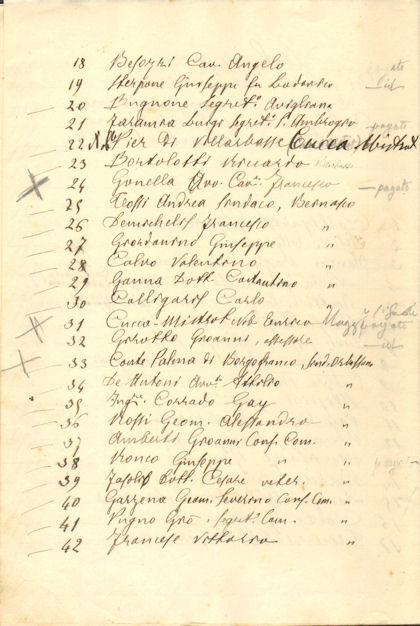 18 Besozzi Cav. Angelo
19 Sterpone Giuseppe fu Lodovico
20 Bugnone Segret.o Avigliana
21 Luigi Segret.o S. Ambrogio pagato
22 Pier di Villarbasse Cucca Mistrot
23 Bortolotti Riccardo
24 Gonella Avv. Cav. Francesco pagato
25 Rossi Andrea Sindaco, Bernasco
26 Demichelis Francesco "
27 Giordanino Giuseppe "
28 Calvo Valentino "
29 Ganna Dott. Costantino "
30 Calligaris Carlo "
31 Cucca-Mistrot Nob. Enrico pagato
32 Girotto Giovanni, assessore
33 Conte Palma di Borgofranco, Sind. Orbassano
34 De Antoni Avv. Attilio "
35 Ing. Corrado Gay "
36 Rossi Geom. Alessandro "
37 Amberti Giovanni Cons. Com. "
38 Ronco Giuseppe " "
39 Fasolis Dott. Cesare veter. "
40 Garzena Geom. Severino Cons. Com. "
41 Vugno Gio. Segret. Com. "
42 Francese Vittorio "